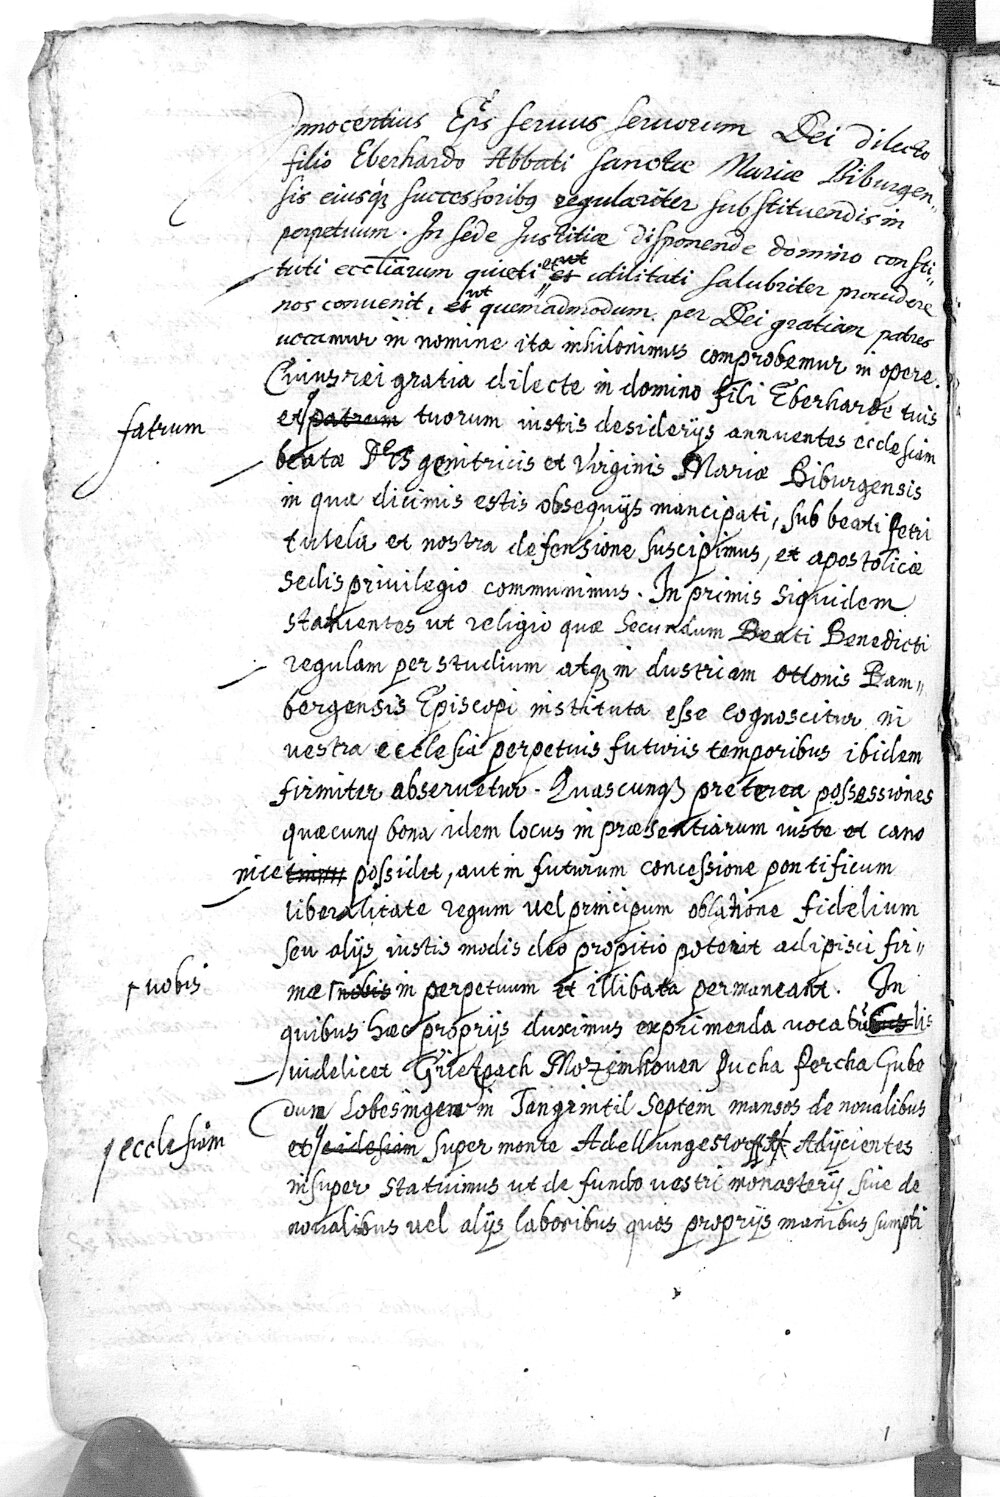 Innocentius Eps servus servorum Dei dilecto
filio Eberhardo Abbati sanctæ Mariæ Biburgen„
sis eiusq; successoribq regulariter substituendis in
perpetuum. In sede Iustitiæ disponende domino consti„
tuti eccliarum quieti et ut et utilitati salubriter providere
nos convenit, et ut quemadmodum per Dei gratiam patres
vocamur in nomine ita inhilominus comprobemur in opere.
Cuius rei gratia dilecte in domino fili Eberharde tuis
et patrum tuorum iustis desiderijs annuentes ecclesiam
fatrum
beatæ Dei genitricis et Virginis Mariæ Biburgensis
in qua dicimis estis obsequijs mancipati, sub beati Petri
tutela et nostra defensione suscipimus, et apostolicæ
sedis privilegio communimus. In primis siquidem
statuentes ut religio quæ secundum Beati Benedicti
regulam per studium atq; in dustriam Ottonis Bam„
bergensis Episcopi instituta esse cognoscitur in
vestra ecclesia perpetuis futuris temporibus ibidem
firmiter observetur. Quascunq; preterea possessiones
quæcunq bona idem locus in præsentiarum iuste et cano
nice possidet, aut in futurum concessione pontificum
liberalitate regum vel principum oblatione fidelium
seu alijs iustis modis deo propitio poterit adipisci fir„
mæ nobis in perpetuum et illibata permaneant. In
vobis
quibus hæc proprijs duximus exprimenda vocabulis
videlicet Griezpach Mozenhoven Pucha Percha Gube
dun Lobesingen in Tangrintil septem mansos de novalibus
et ecclesiam super monte Adellungestorff Adijcientes
ecclesiam
insuper statuimus ut de fundo vestri monasterij sive de
novalibus vel alijs laboribus quos proprijs manibus sumpti
1